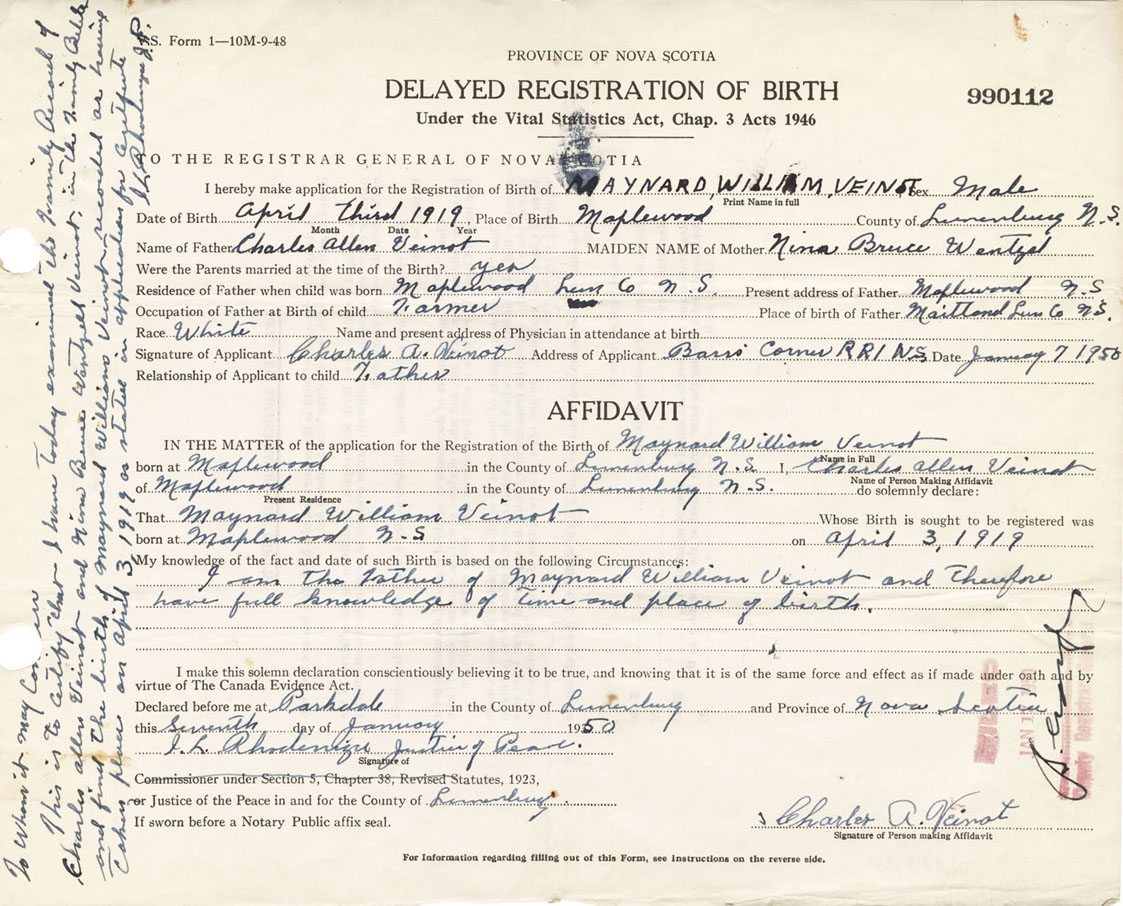 V.S. Form 1—10M-9-48
PROVINCE OF NOVA SCOTIA
DELAYED REGISTRATION OF BIRTH
990112
Under the Vital Statistics Act, Chap. 3 Acts 1946
TO THE REGISTRAR GENERAL OF NOVA SCOTIA
I hereby make application for the Registration of Birth of MAYNARD, WILLIAM, VEINOT Sex Male
Print Name in full
Date of Birth April Third 1919, Place of Birth Maplewood County of Lunenburg N.S.
Month Date Year
Name of Father Charles Allen Veinot MAIDEN NAME of Mother Nina Bruce Wentzel
Were the Parents married at the time of the Birth? yes
Residence of Father when child was born Maplewood Lun Co N.S. Present address of Father Maplewood N.S
Occupation of Father at Birth of child Farmer Place of birth of Father Maitland Lun Co N.S.
Race White Name and present address of Physician in attendance at birth
Signature of Applicant Charles A. Veinot Address of Applicant Barss Corner RR1 N.S. Date January 7 1950
Relationship of Applicant to child Father
AFFIDAVIT
IN THE MATTER of the application for the Registration of the Birth of Maynard William Veinot
Name in Full
born at Maplewood in the County of Lunenburg N.S. I, Charles Allen Veinot
Name of Person Making Affidavit
of Maplewood in the County of Lunenburg N.S. do solemnly declare:
Present Residence
That Maynard William Veinot Whose Birth is sought to be registered was
born at Maplewood N-S on April 3, 1919
My knowledge of the fact and date of such Birth is based on the following Circumstances:
I am the Father of Maynard William Veinot and Therefore
have full knowledge of time and place of birth.
I make this solemn declaration conscientiously believing it to be true, and knowing that it is of the same force and effect as if made under oath and by
virtue of The Canada Evidence Act.
Declared before me at Parkdale in the County of Lunenburg and Province of Nova Scotia
this Seventh day of January 1950
J. L. Rhodenizer Justice of Peace.
Signature of
Commissioner under Section 5, Chapter 38, Revised Statutes, 1923,
or Justice of the Peace in and for the County of Lunenburg.
If sworn before a Notary Public affix seal.
Charles A. Veinot
Signature of Person making Affidavit
For Information regarding filling out of this Form, see instructions on the reverse side.
To Whom it May Concern
This is to Certify that I have Today examined the Family Record of
Charles Allen Veinot and Nina Bruce Wentzell Veinot, in the Family Bible
and find the birth of Maynard Williams Veinot recorded as having
Taken place on April 3 1919 as stated in application for Certificate
J L Rhodenizer J.P.